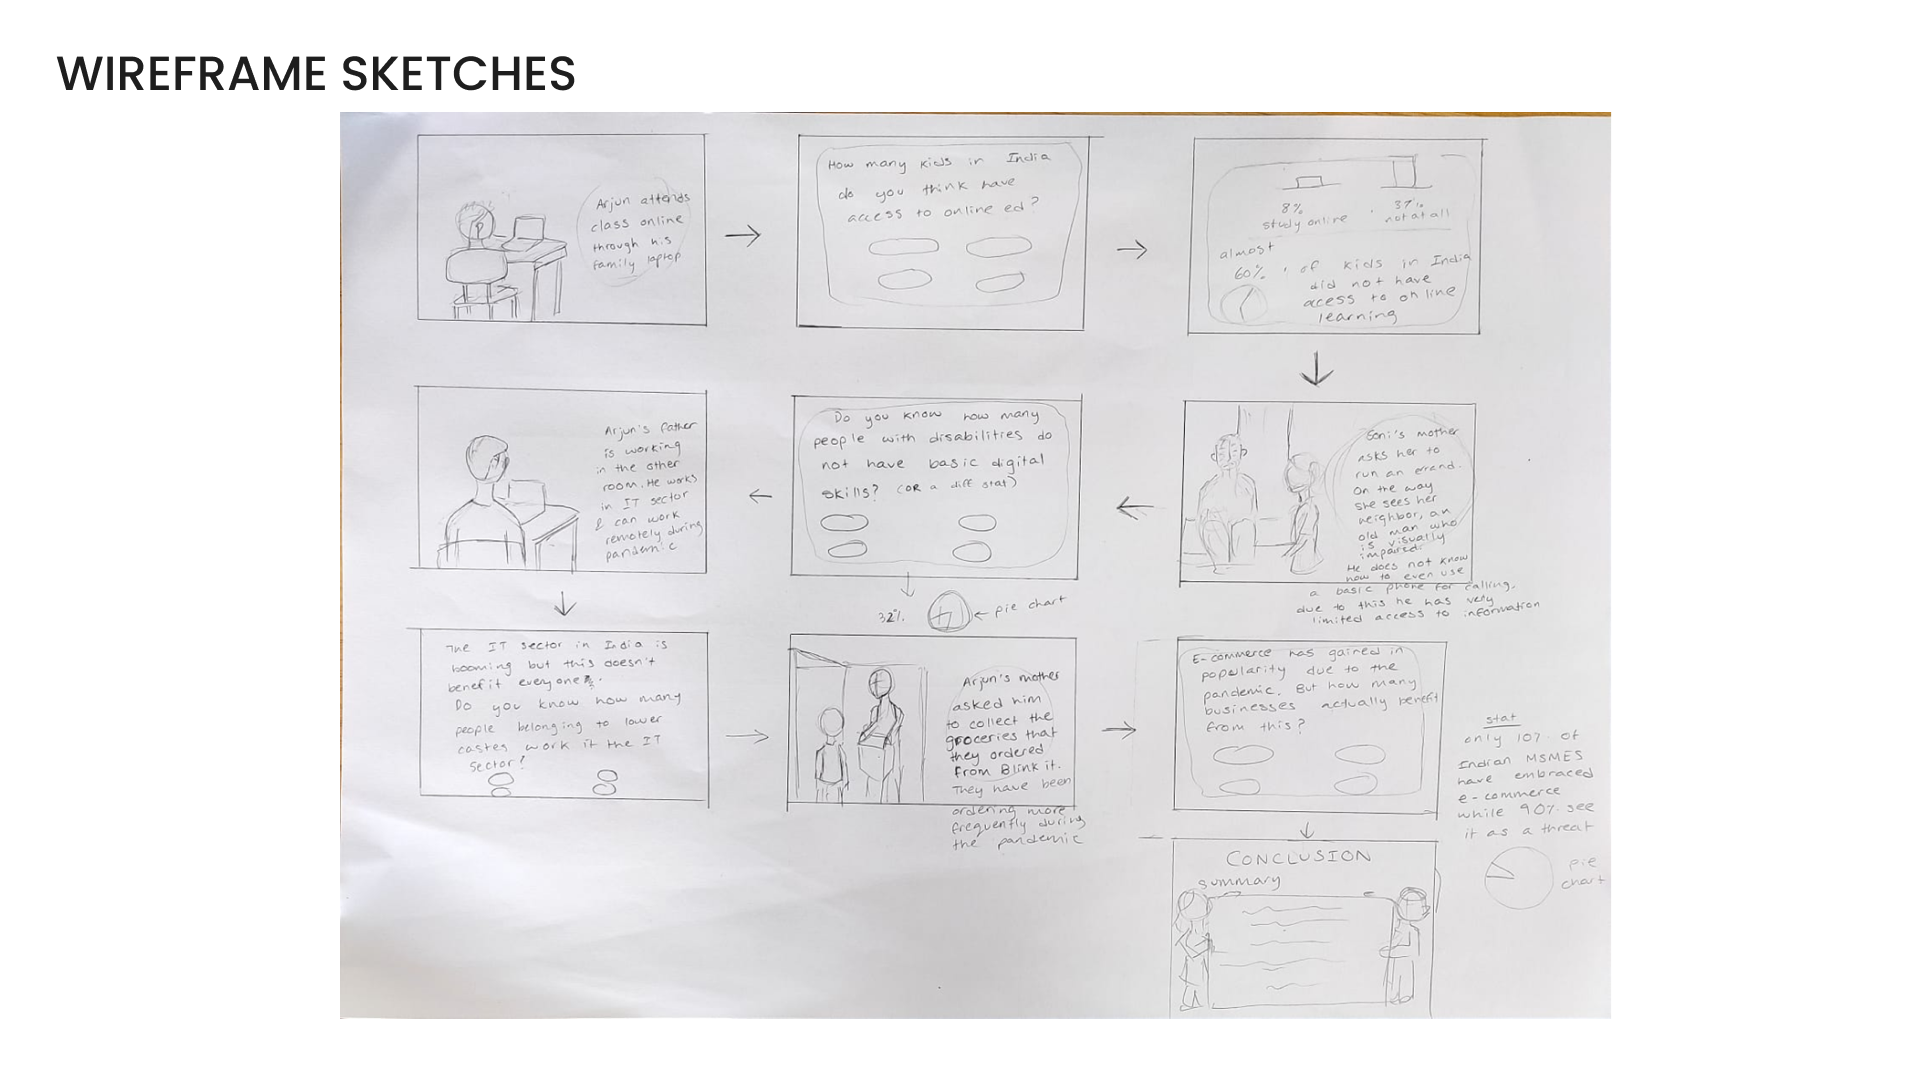 WIREFRAME SKETCHES
Arjun attends
class online
through his
family laptop
How many kids in India
do you think have
access to online ed?
8%
study online
37%
not at all
almost
60% of kids in India
did not have
acess to online
learning
Soni's mother
asks her to
run an errand.
On the way
she sees her
neighbor, an
old man who
is visually
impaired.
He does not know
how to even use
a basic phone for calling,
due to this he has very
limited access to information
Do you know how many
people with disabilities do
not have basic digital
skills? (OR a diff stat)
32%
← pie chart
Arjun's father
is working
in the other
room. He works
in IT sector
& can work
remotely during
pandemic
The IT sector in India is
booming but this doesn't
benefit everyone.
Do you know how many
people belonging to lower
castes work it the IT
sector?
Arjun's mother
asked him
to collect the
groceries that
they ordered
from Blink it.
They have been
ordering more
frequently during
the pandemic
E-commerce has gained in
popularity due to the
pandemic. But how many
businesses actually benefit
from this?
stat
only 10% of
Indian MSMES
have embraced
e-commerce
while 90% see
it as a threat
pie
chart
CONCLUSION
summary